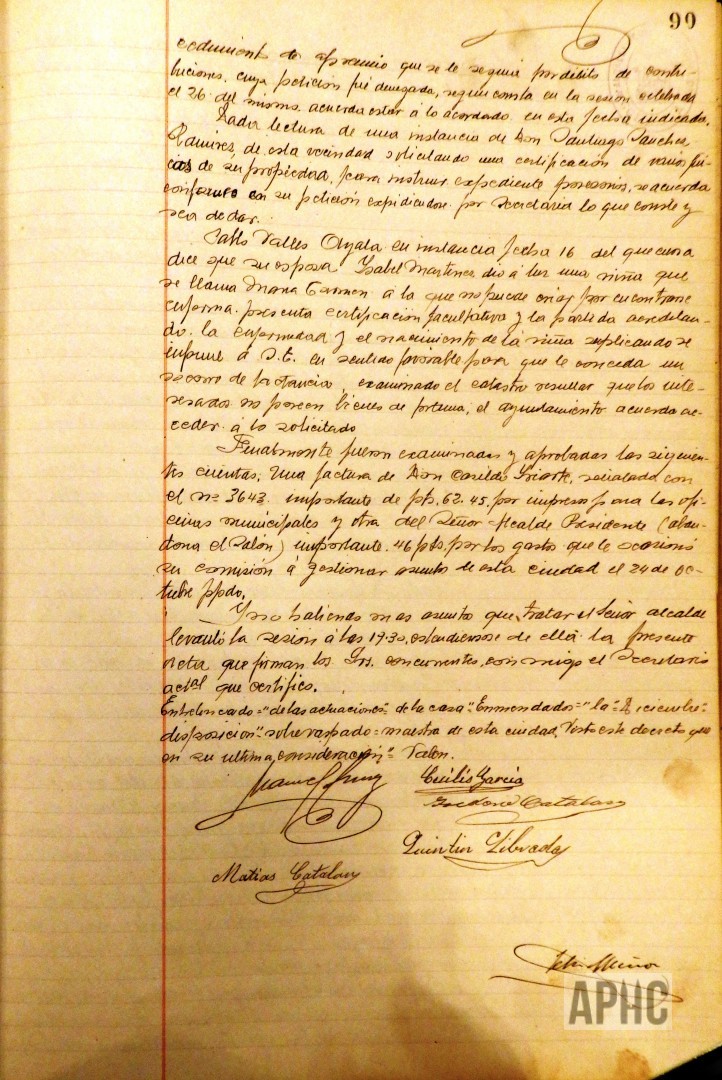 99
cedimiento de apremio que se le seguia por débito de contri-
buciones, cuya petición fué denegada, segun consta en la sesión celebrada
el 26 del mismo. acuerda estar á lo acordado en esta fecha indicada.
Dada lectura de una instancia de Don Santiago Sanchez
Ramirez, de esta vecindad solicitando una certificación de varias fin-
cas de su propiedad, para instruir expediente posesorio, se acuerda
conforme en su petición expidiendose por Secretaria lo que conste y
sea de dar.
Pablo Valles Ayala en instancia fecha 16 del que cursa
dice que su esposa Ysabel Martinez dió á luz una niña que
se llama Maria Carmen á la que no puede criar por encontrarse
enferma. presenta certificación facultativa y la partida acreditan-
do la enfermedad y el nacimiento de la niña suplicando se
informe á S.E. en sentido favorable para que le conceda un
socorro de lactancia, examinado el catastro resultar que los inte-
resados no poseen bienes de fortuna, el ayuntamiento acuerda ac-
ceder á lo solicitado
Finalmente fueron examinadas y aprobadas las siguien-
tes cuentas, Una factura de Don Casildo Iriarte, señalada con
el nº 3643 importante de pts. 62.45. por impresos para las ofi-
cinas municipales y otra del Señor Alcalde Presidente (aban-
dona el Salon) importante. 46 pts. por los gastos que le ocasionó
su comisión á gestionar asunto de esta ciudad el 24 de Oc-
tubre ppdo.
Y no habiendo mas asunto que tratar el Señor alcalde
levantó la sesión á las 19'30, estendiendose de ella la presente
acta que firman los Srs. concurrentes, con migo el Secretario
actal que certifico.
Entrelineado="de las actuaciones" de la casa" Enmendados="la" Diciembre"
disposición" sobre raspado = maestra de esta ciudad, Visto este decreto que
en su ultima consideración" Valen.
Manuel
Emilio Garcia
Catalan
Quintin Librada
Matias Catalan
APHC